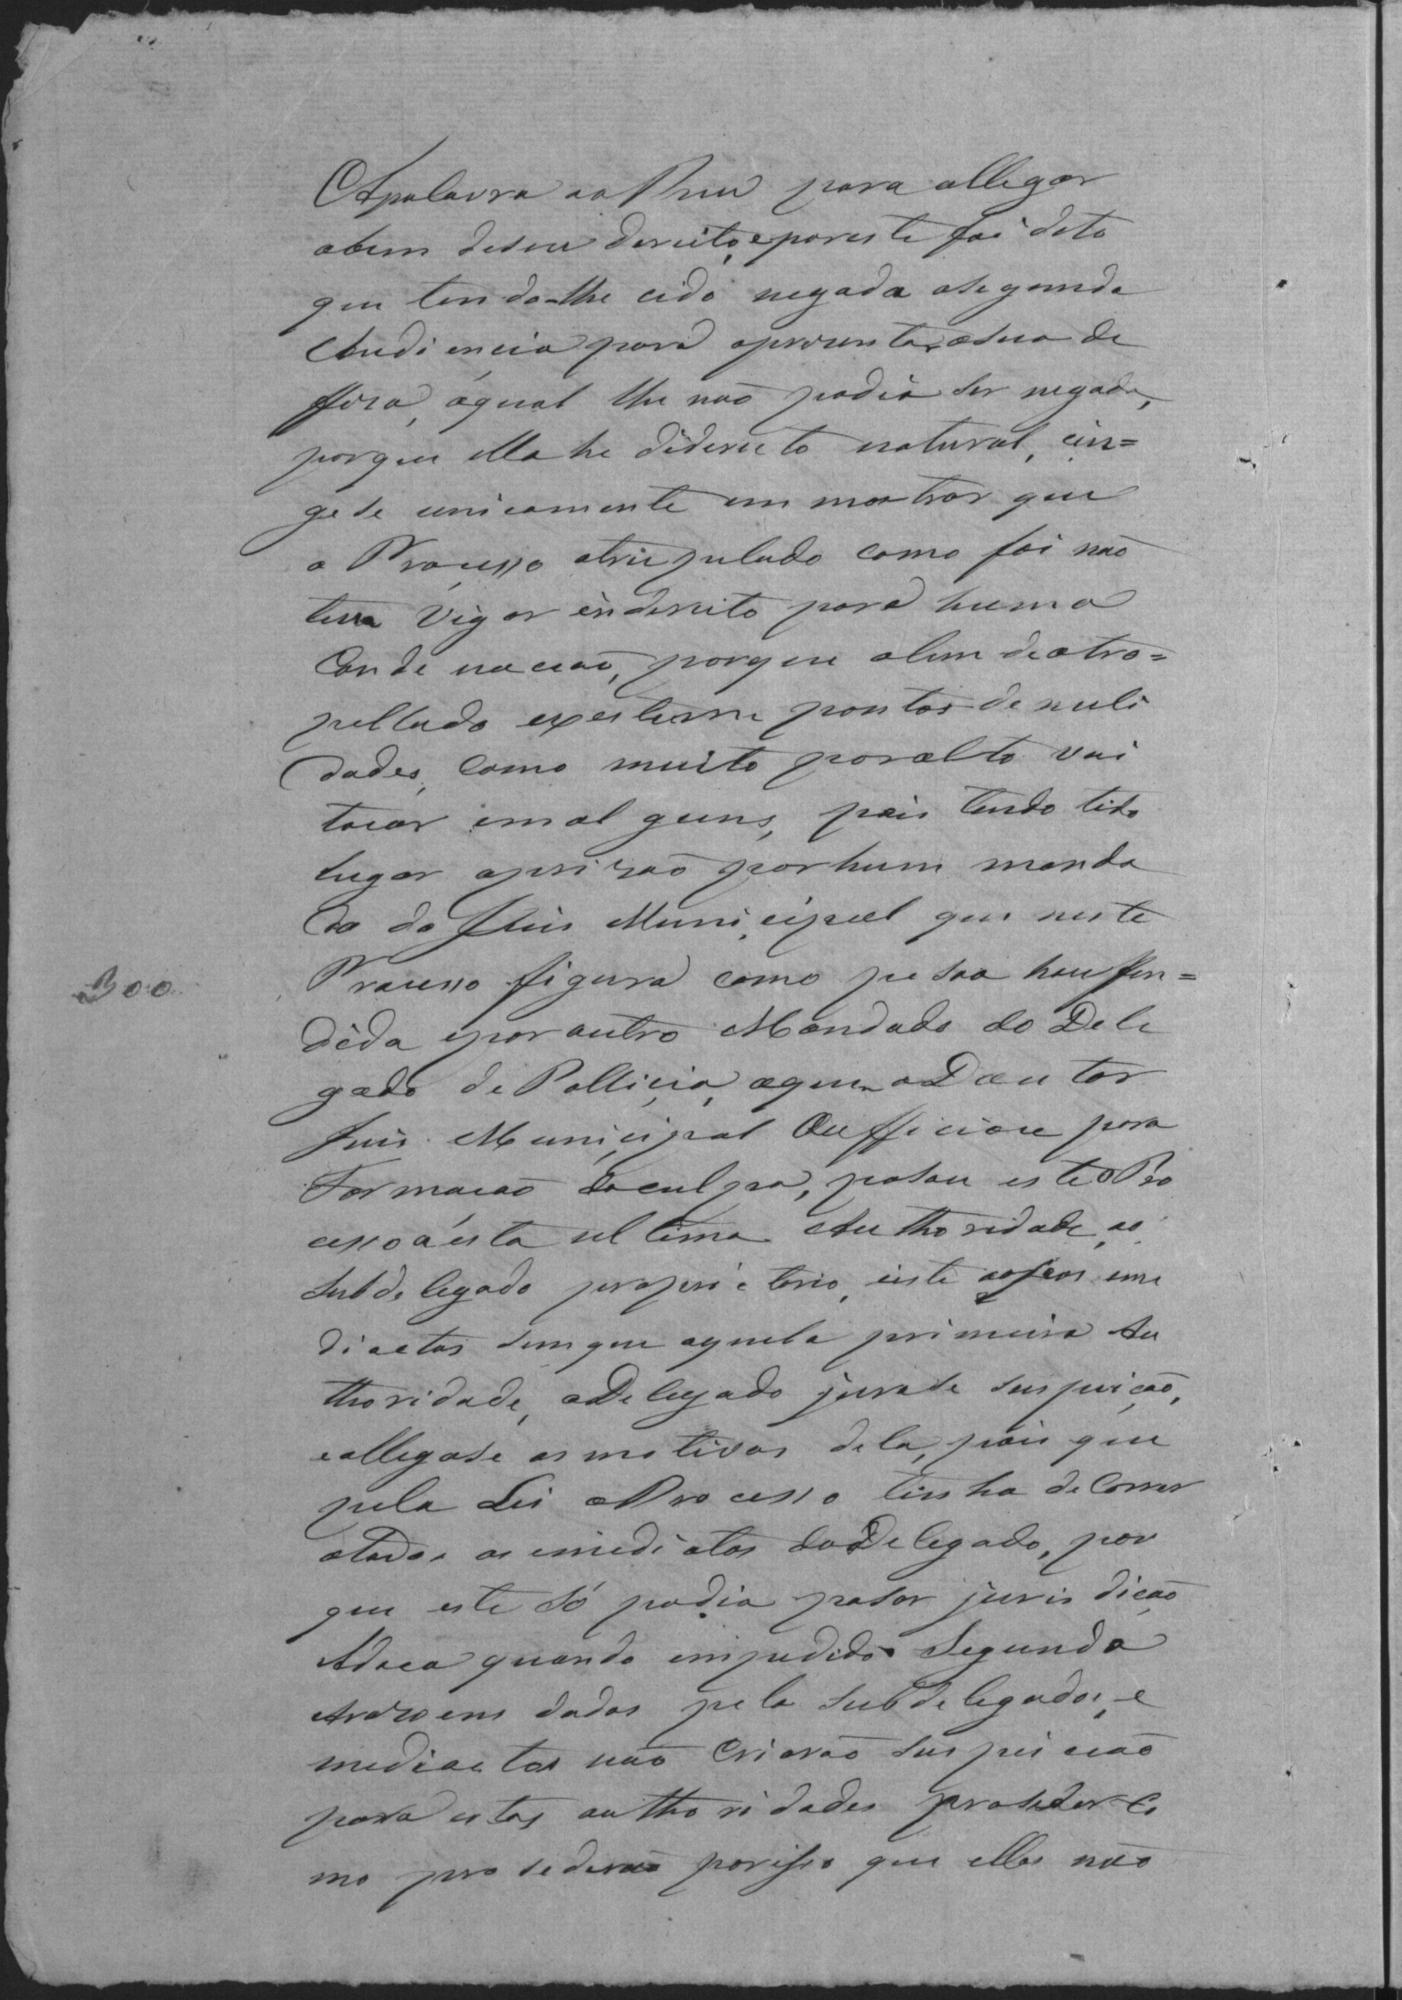 Apalavra ao Reu para allegar
abem deseu dereito, eporeste foi dito
que tendo-lhe cido negada asegunda
Audiencia para aprezentar asua de
ffeza, aqual lhe não podia ser negada,
porque ella he dedereito natural, cin=
gese unicamente em mostrar que
o Processo atrupulado como foi não
tem vigor indereito para huma
Condenaccaõ, porque alem deatro=
pellado existem pontos de nuli
dades, como muito poralto vai
tocar emalguns, pois tendo tido
lugar aprizaõ porhum manda
do do Juis Municipal que neste
Processo figura como pesoa houffen=
dida eporoutro Mandado do Dele
gado de Pollicia, aquem o Doutor
Juis Municipal Oufficiou para
Formacaõ daculpa, pasou este o Pro
cesso áesta ultima Authoridade, ao
Subdelegado proprietario, eeste aoseos ime
diactos semque aquela primeira Au
thoridade, oDelegado jurase suspeicaõ,
eallegase osmotivos dela, pois que
pela Lei oProcesso tinha deCorrer
atodos os imediatos doDelegado, por
que este só podia pasar jurisdicaõ
Adoca quando impedido. Segundo
Arazoens dadas pelo Subdelegados, e
mediactos naõ Criaraõ suspeicaõ
para estas authoridades proseder Co
mo prosederaõ porisso que elles não
300